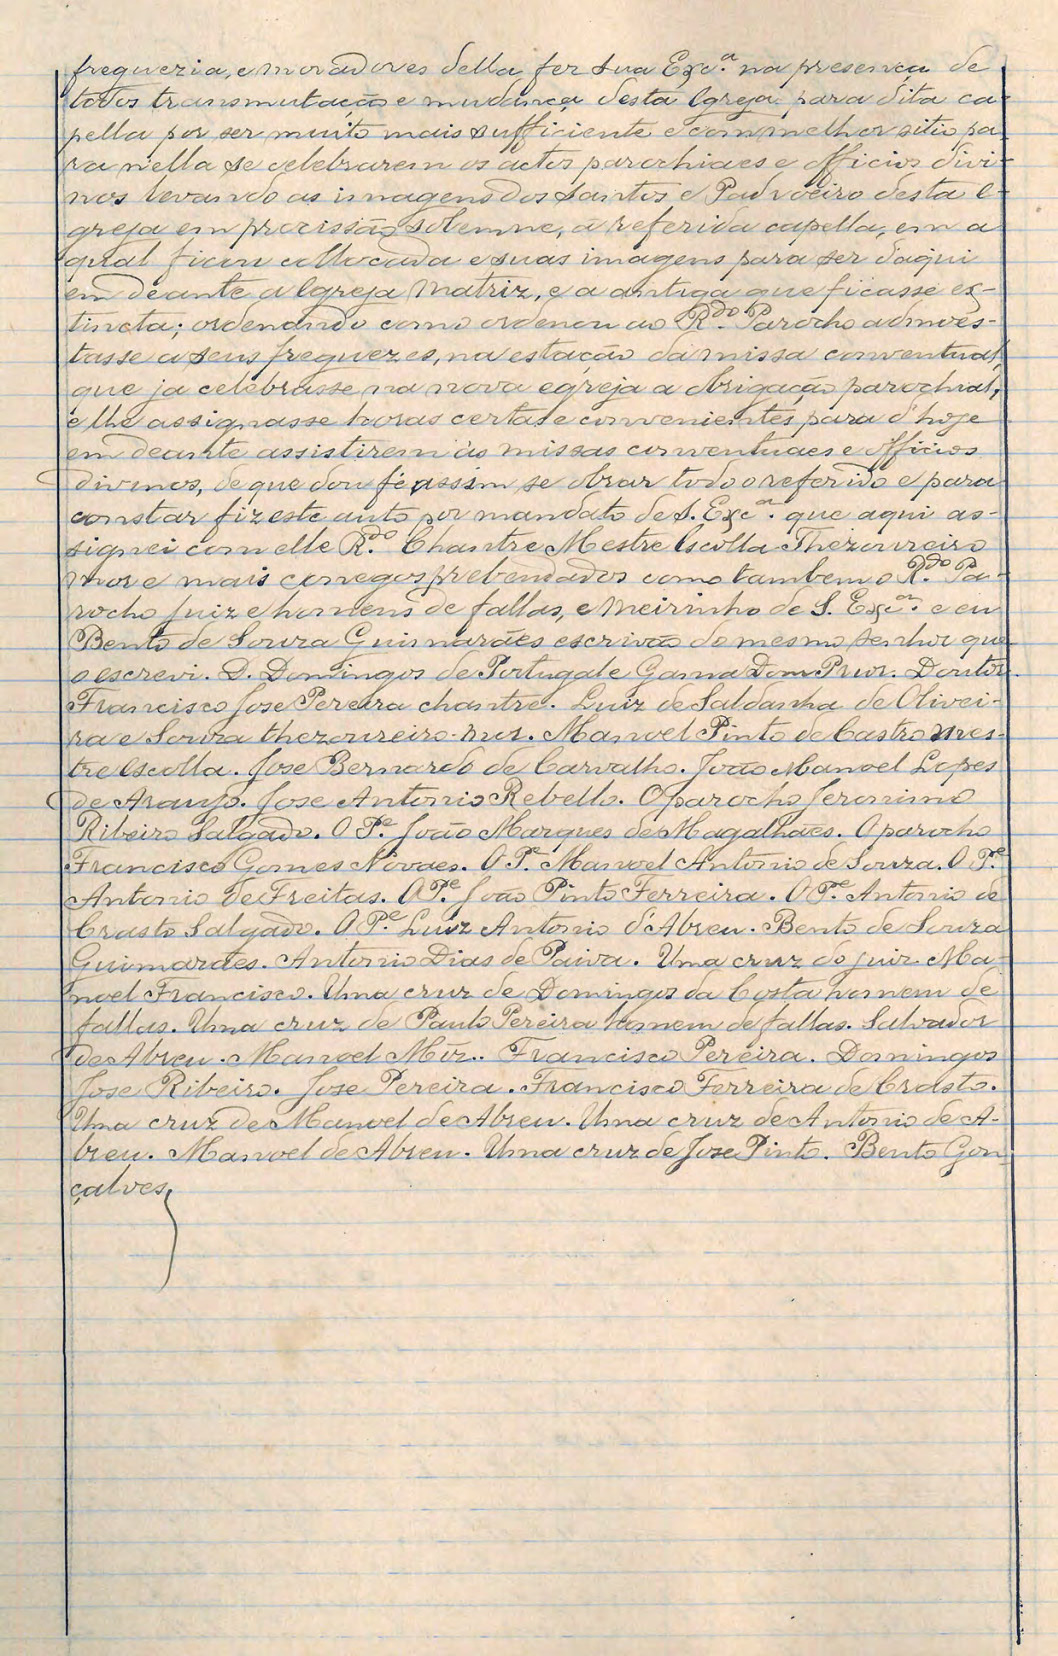 freguezia, e moradores della fez sua Exc.ª na presença de
todos transmutação e mudança desta Egreja para dita ca-
pella por ser muito mais sufficiente e com melhor sitio pa-
ra nella se celebrarem os actos parochiaes e officios divi-
nos levando as imagens dos Santos e Padroeiro desta E-
greja em procissão solemne, á referida capella, em a
qual ficou collocada e suas imagens para ser d'aqui
em deante a Egreja Matriz, e a antiga que ficasse ex-
tincta; ordenando como ordenou ao R.do Parocho admoes-
tasse a seus freguezes, na estação da missa conventual,
que ja celebrasse na nova egreja a obrigação parochial,
e lhe assignasse horas certas e convenientes para d'hoje
em deante assistirem ás missas conventuaes e officios
divinos, de que dou fé, assim se obrar todo o referido e para
constar fiz este auto por mandato de S. Exc.ª que aqui as-
signei com elle R.do Chantre Mestre Escolla Thezoureiro
mor e mais conegos prebendados como tambem o R.do Pa-
rocho juiz e homens de fallas, e meirinho de S. Exc.ª e eu
Bento de Souza Guimarães escrivão do mesmo senhor que
o escrevi. D. Domingos de Portugal e Gama Dom Prior. Doutor
Francisco Jose Pereira chantre. Luiz de Saldanha de Olivei-
ra e Souza thezoureiro-mor. Manoel Pinto de Castro mes-
tre escolla. Jose Bernardo de Carvalho. João Manoel Lopes
de Araujo. Jose Antonio Rebello. O parocho Jeronimo
Ribeiro Salgado. O P.e João Marques de Magalhães. O parocho
Francisco Gomes Novaes. O P.e Manoel Antonio de Souza. O P.e
Antonio de Freitas. O P.e João Pinto Ferreira. O P.e Antonio de
Crasto Salgado. O P.e Luiz Antonio d'Abreu. Bento de Souza
Guimarães. Antonio Dias de Paiva. Uma cruz do juiz Ma-
noel Francisco. Uma cruz de Domingos da Costa homem de
fallas. Uma cruz de Paulo Pereira homem de fallas. Salvador
de Abreu. Manoel Miz.. Francisco Pereira. Domingos
Jose Ribeiro. Jose Pereira. Francisco Ferreira de Crasto.
Uma cruz de Manoel de Abreu. Uma cruz de Antonio de A-
breu. Manoel de Abreu. Uma cruz de Jose Pinto. Bento Gon-
çalves